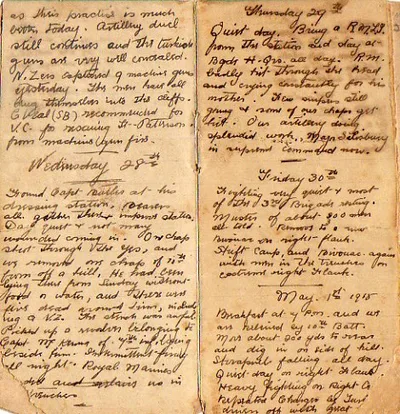 as this practice is much
better today. Artillery duel
still continues and the turkish
guns are very well concealed.
N. Zers captured 9 machine guns
yesterday. The men have all
dug themselves into the cliffs.
(SB) recommended for
V.C. for rescuing Lt-Patterson
from machine gun fire.
Wednesday 28th
Found Capt at his
dressing station. Bearers
all gather there
Day quiet & not many
wounded coming in. One chap
shot through the eyes, and
we remove a chap of 10th
from off a hill, He had been
lying there from Sunday without
food or water, and there were
dead around him,
The stench was awful
Picked up a revolver belonging to
Capt. of 4th Inf, lying
beside him. Intermittent firing
all night - Royal Marines
and relieve us in
trenches
Thursday 29th
Quiet day. Bring a
from the station and stay at
Bgds H-Qrs. all day. R.M.
badly hit through the head
and crying constantly for his
mother. Few snipers still
going & some of our chaps get
hit. Our artillery doing
splendid work, Major Salisbury
in supreme command now.
Friday 30th
Fighting very quiet & most
of the 3rd Brigade resting.
Muster of about 800 men
all told. Remove to a new
Bivouac on right flank.
Shift Camp, and Bivouac again
with men in the trenches for
extreme right flank.
May. 1st 1915
Breakfast at 4 am. and we
are relieved by 10th Batt.
Move about 200 yds to rear
and dig in on side of hill.
Shrapnell falling all day.
Quiet day on right flank.
Heavy fighting on Right &
Repeated Charges by Turks
driven off with great